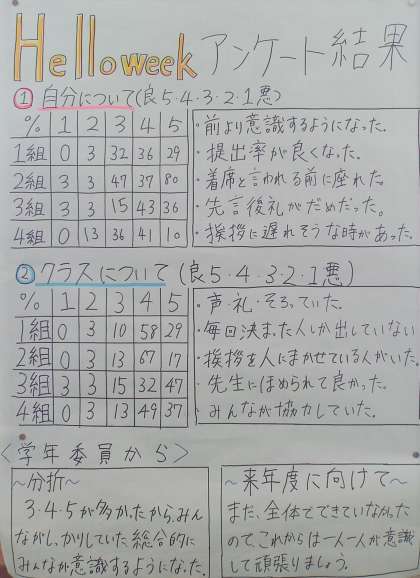 Helloweek アンケート結果
① 自分について(良5・4・3・2・1悪)
% 1 2 3 4 5
1組 0 3 32 36 29
2組 3 3 47 37 80
3組 3 3 15 43 36
4組 0 13 36 41 10
・前より意識するようになった。
・提出率が良くなった.
・着席と言われる前に座れた。
・先言後礼がだめだった。
・挨拶に遅れそうな時があった.
② クラスについて(良5・4・3・2・1悪)
% 1 2 3 4 5
1組 0 3 10 58 29
2組 0 3 13 67 17
3組 3 3 15 32 47
4組 0 3 13 49 37
・声・礼・そろっていた.
・毎回決まった人しか出していない
・挨拶を人にまかせている人がいた.
・先生にほめられて良かった.
・みんなが協力していた.
<学年委員から>
~分折~
3・4・5が多かったから,みん
ながしっかりしていた総合的に
みんなが意識するようになった.
~来年度に向けて~
まだ、全体でできていなかった
ので、これからは一人一人が意識
して頑張りましょう。